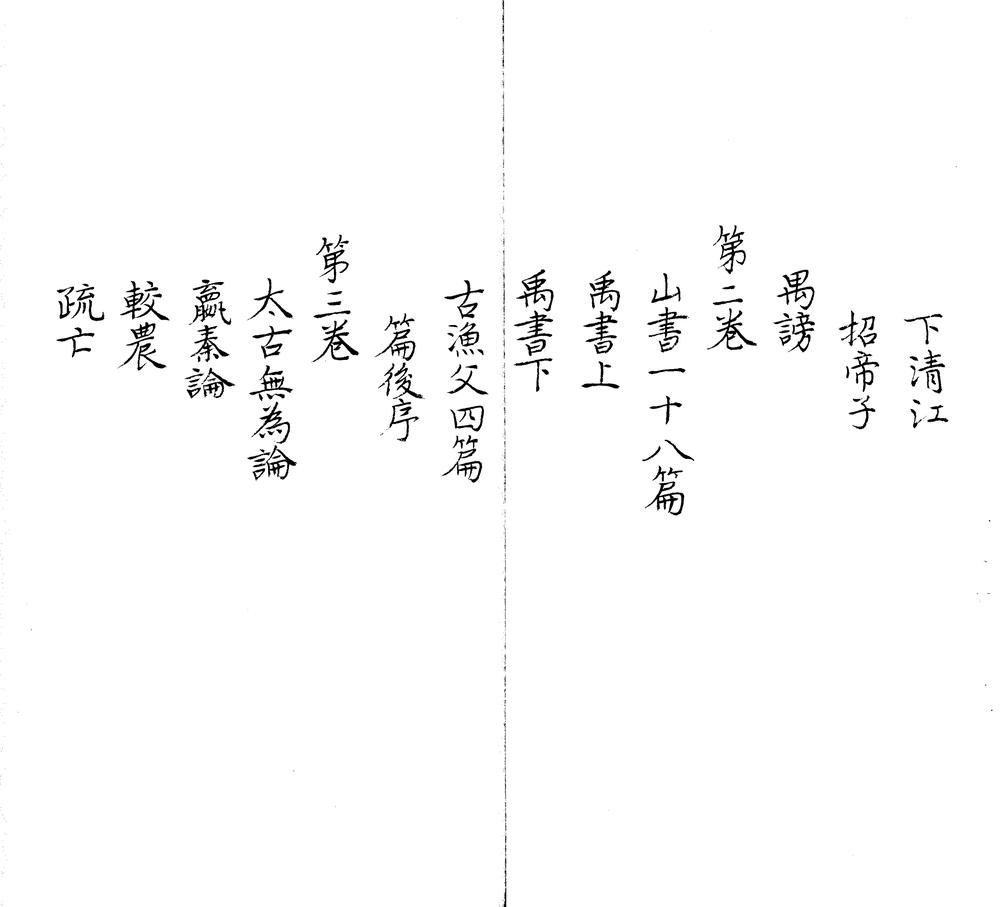 下清江
招帝子
禺謗
第二卷
山書一十八篇
禹書上
禹書下
古漁父四篇
篇後序
第三卷
太古無為論
嬴秦論
較農
疏亡